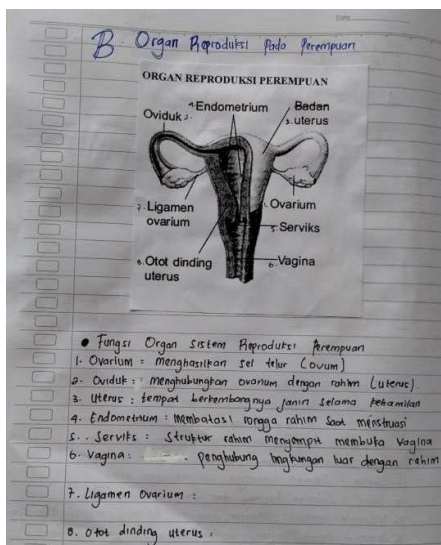 B. Organ Reproduksi Pada Perempuan
ORGAN REPRODUKSI PEREMPUAN
Oviduk 2.
4. Endometrium
Badan
3. uterus
7. Ligamen
ovarium
1. Ovarium
5. Serviks
8. Otot dinding
uterus
6. Vagina
• Fungsi Organ Sistem Reproduksi Perempuan
1. Ovarium : menghasilkan sel telur (ovum)
2. Oviduk : menghubungkan ovarium dengan rahim (uterus).
3. Uterus : tempat berkembangnya janin selama kehamilan
4. Endometrium : membatasi rongga rahim saat menstruasi
5. Serviks : struktur rahim menyempit membuka vagina
6. Vagina : penghubung lingkungan luar dengan rahim
7. Ligamen Ovarium :
8. Otot dinding uterus :